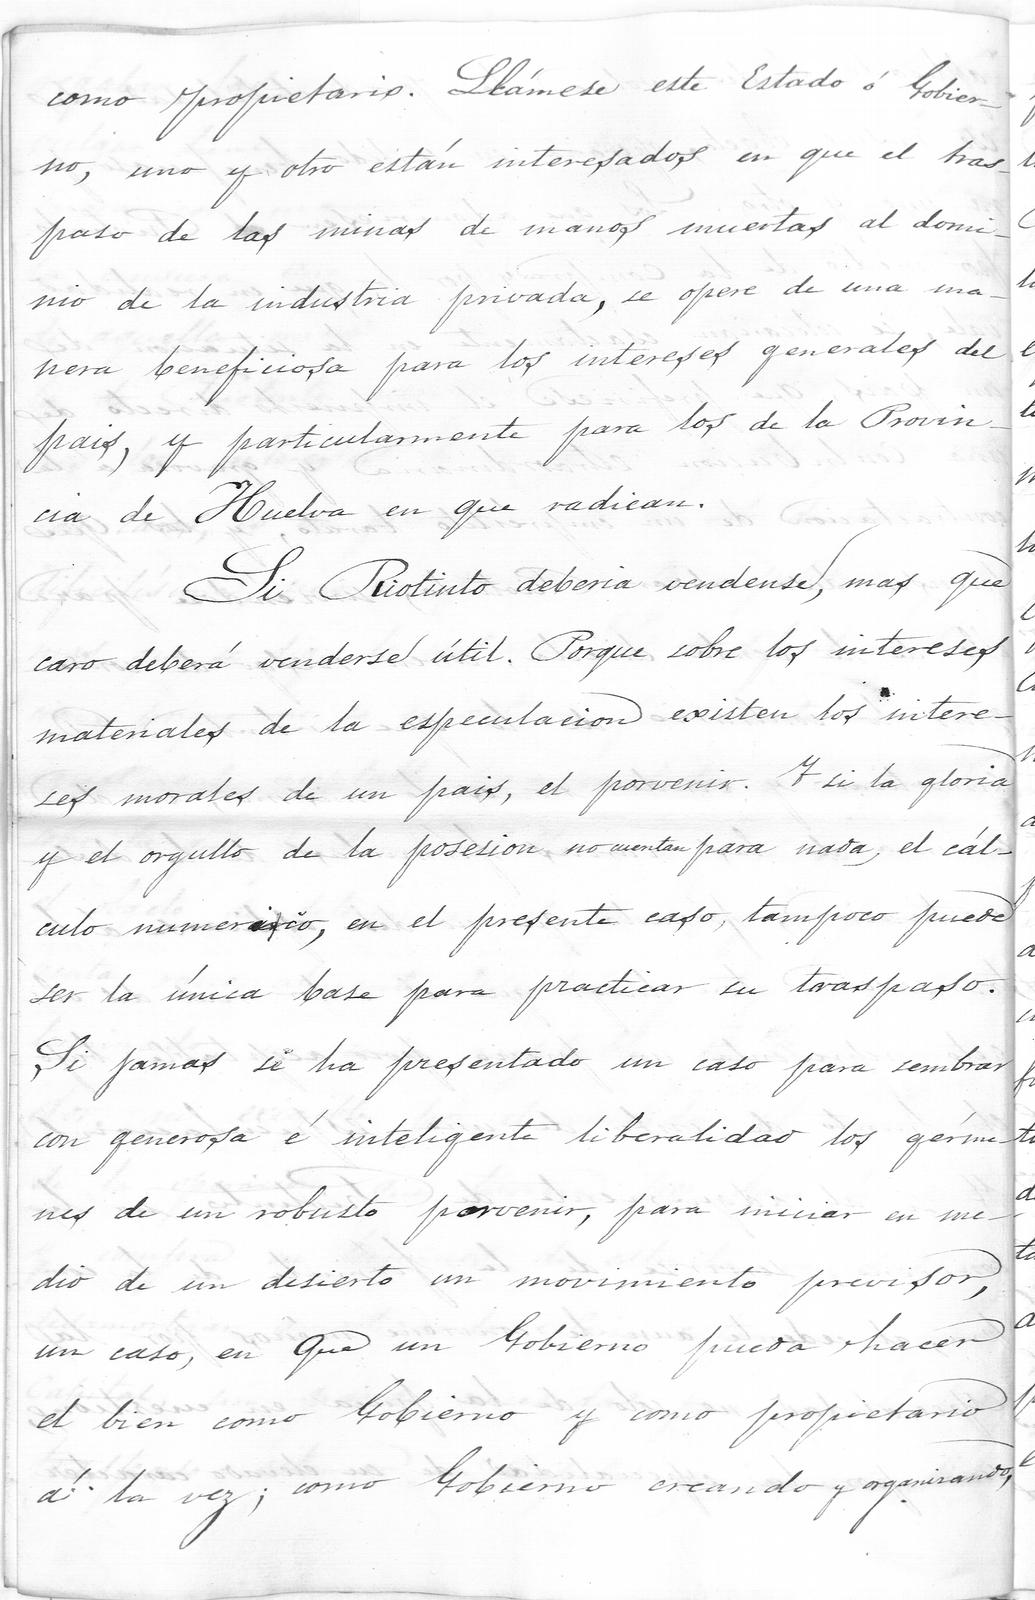 como propietario. Llámese este Estado ó Gobier-
no, uno y otro están interesados en que el tras-
paso de las minas de manos muertas al domi-
nio de la industria privada, se opere de una ma-
nera beneficiosa para los intereses generales del
pais, y particularmente para los de la Provin-
cia de Huelva en que radican.
Si Riotinto deberia vendense, mas que
caro deberá venderse útil. Porque sobre los intereses
materiales de la especulacion existen los intere-
ses morales de un pais, el porvenir. Y si la gloria
y el orgullo de la posesion no cuentan para nada, el cál-
culo numerico, en el presente caso, tampoco puede
ser la única base para practicar su traspaso.
Si jamas se ha presentado un caso para sembrar
con generosa é inteligente liberalidad los gérme-
nes de un robusto porvenir, para iniciar en me-
dio de un desierto un movimiento previsor,
un caso, en que un Gobierno pueda hacer
el bien como Gobierno y como propietario
á la vez; como Gobierno creando y organisando,